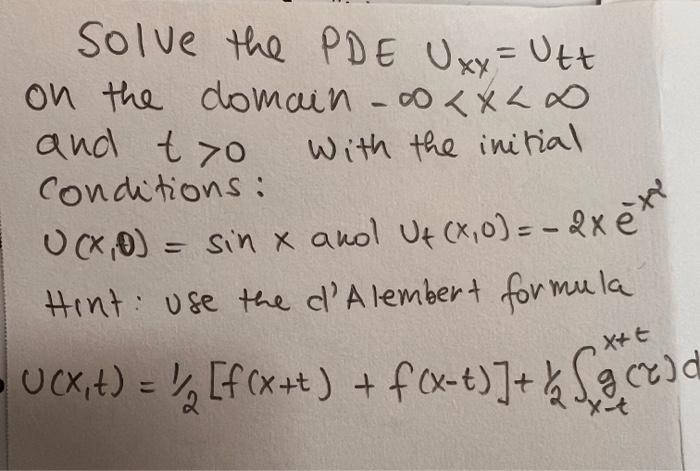 Solve the PDE Uxx = Utt
on the domain - ∞ < x < ∞
and t >0 with the initial
Conditions:
U(x,0) = sin x and Ut (x,0) = - 2x e^-x²
Hint: use the d'Alembert formula
U(x,t) = 1/2 [f(x+t) + f(x-t)] + 1/2 ∫_{x-t}^{x+t} g(τ)d